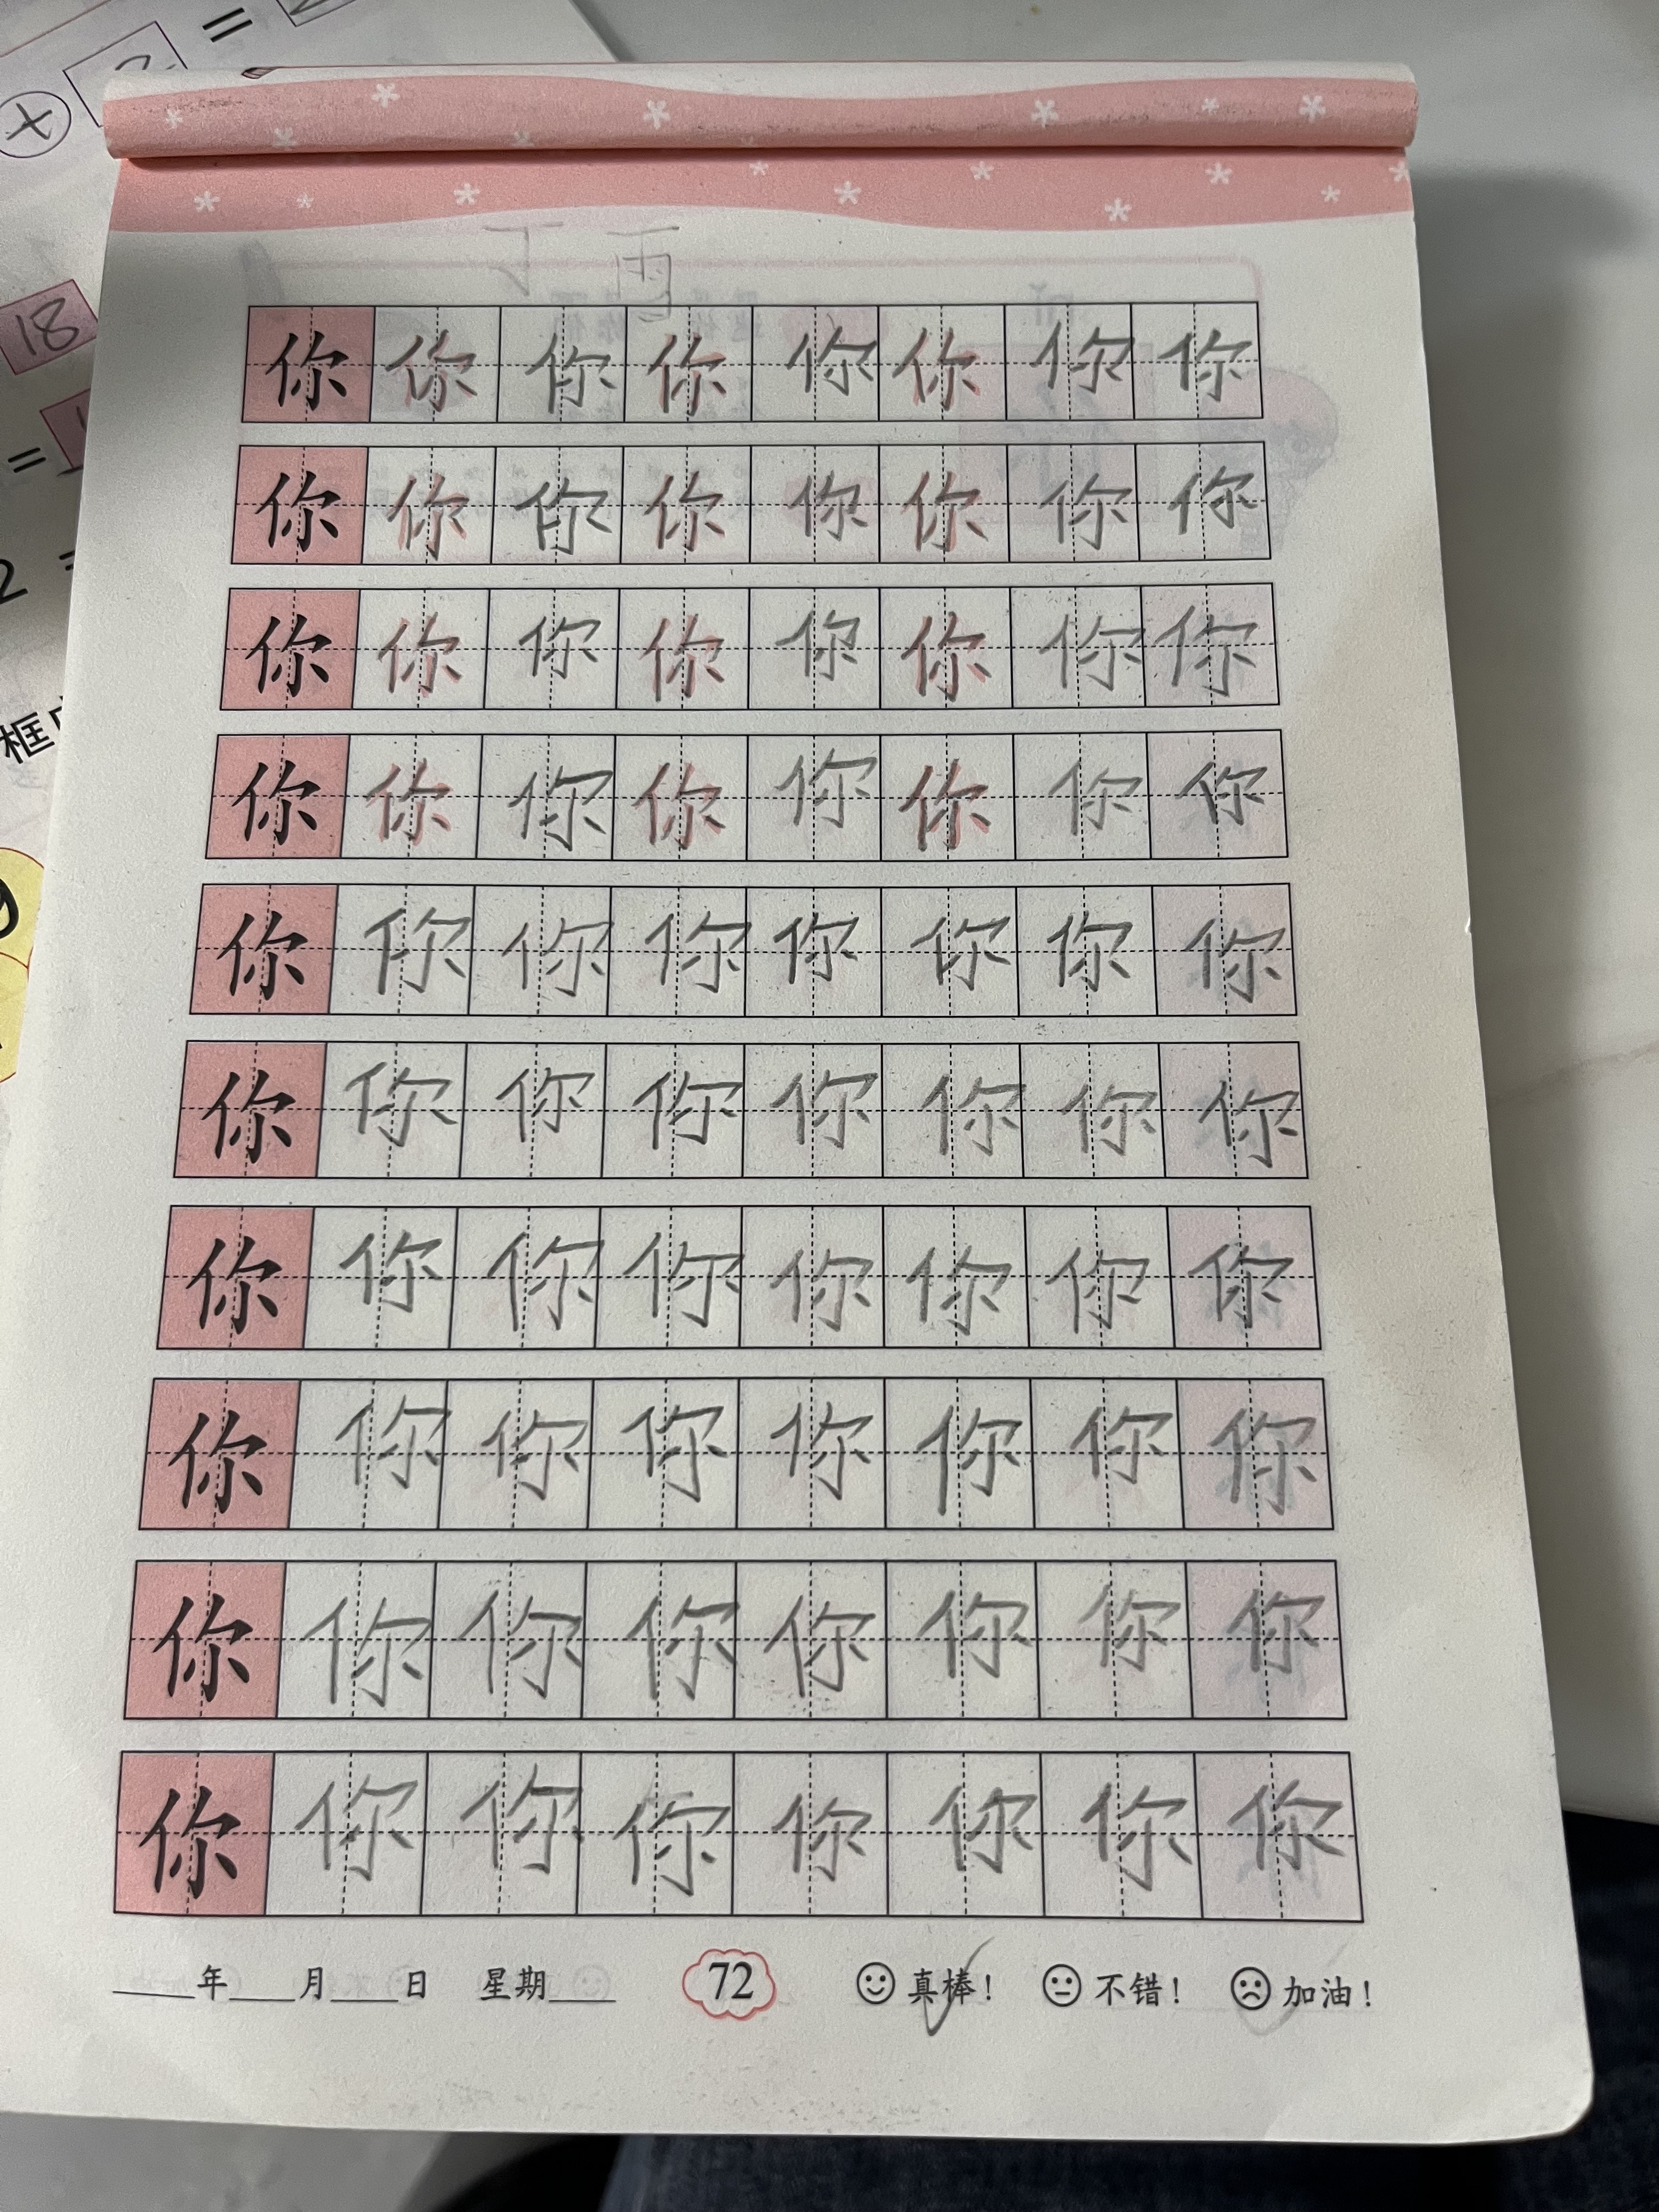 =
+
丁雨
18
=
2 =
框
你你你你你你你你
你你你你你你你你
你你你你你你你你
你你你你你你你你
你你你你你你你你
你你你你你你你你
你你你你你你你你
你你你你你你你你
你你你你你你你你
你你你你你你你你
____年____月____日 星期____ 72 真棒! 不错! 加油!